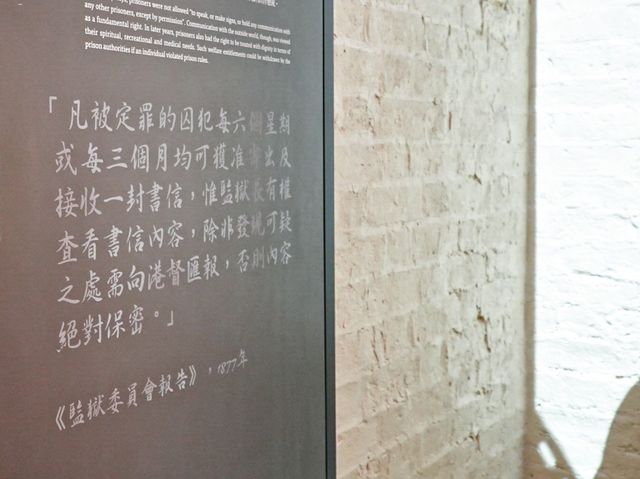 prisoners were not allowed "to speak, or make signs, or hold any communication with
any other prisoners, except by permission". Communication with the outside world, though, was viewed
as fundamental right. In later years, prisoners also had the right to be treated with dignity in terms of
their spiritual, recreational and medical needs. Such welfare entitlements could be withdrawn by the
prison authorities if an individual violated prison rules.
「凡被定罪的囚犯每六個星期
或每三個月均可獲准寄出及
接收一封書信，惟監獄長有權
查看書信內容，除非發現可疑
之處需向港督匯報，否則內容
絕對保密。」
《監獄委員會報告》，1877年